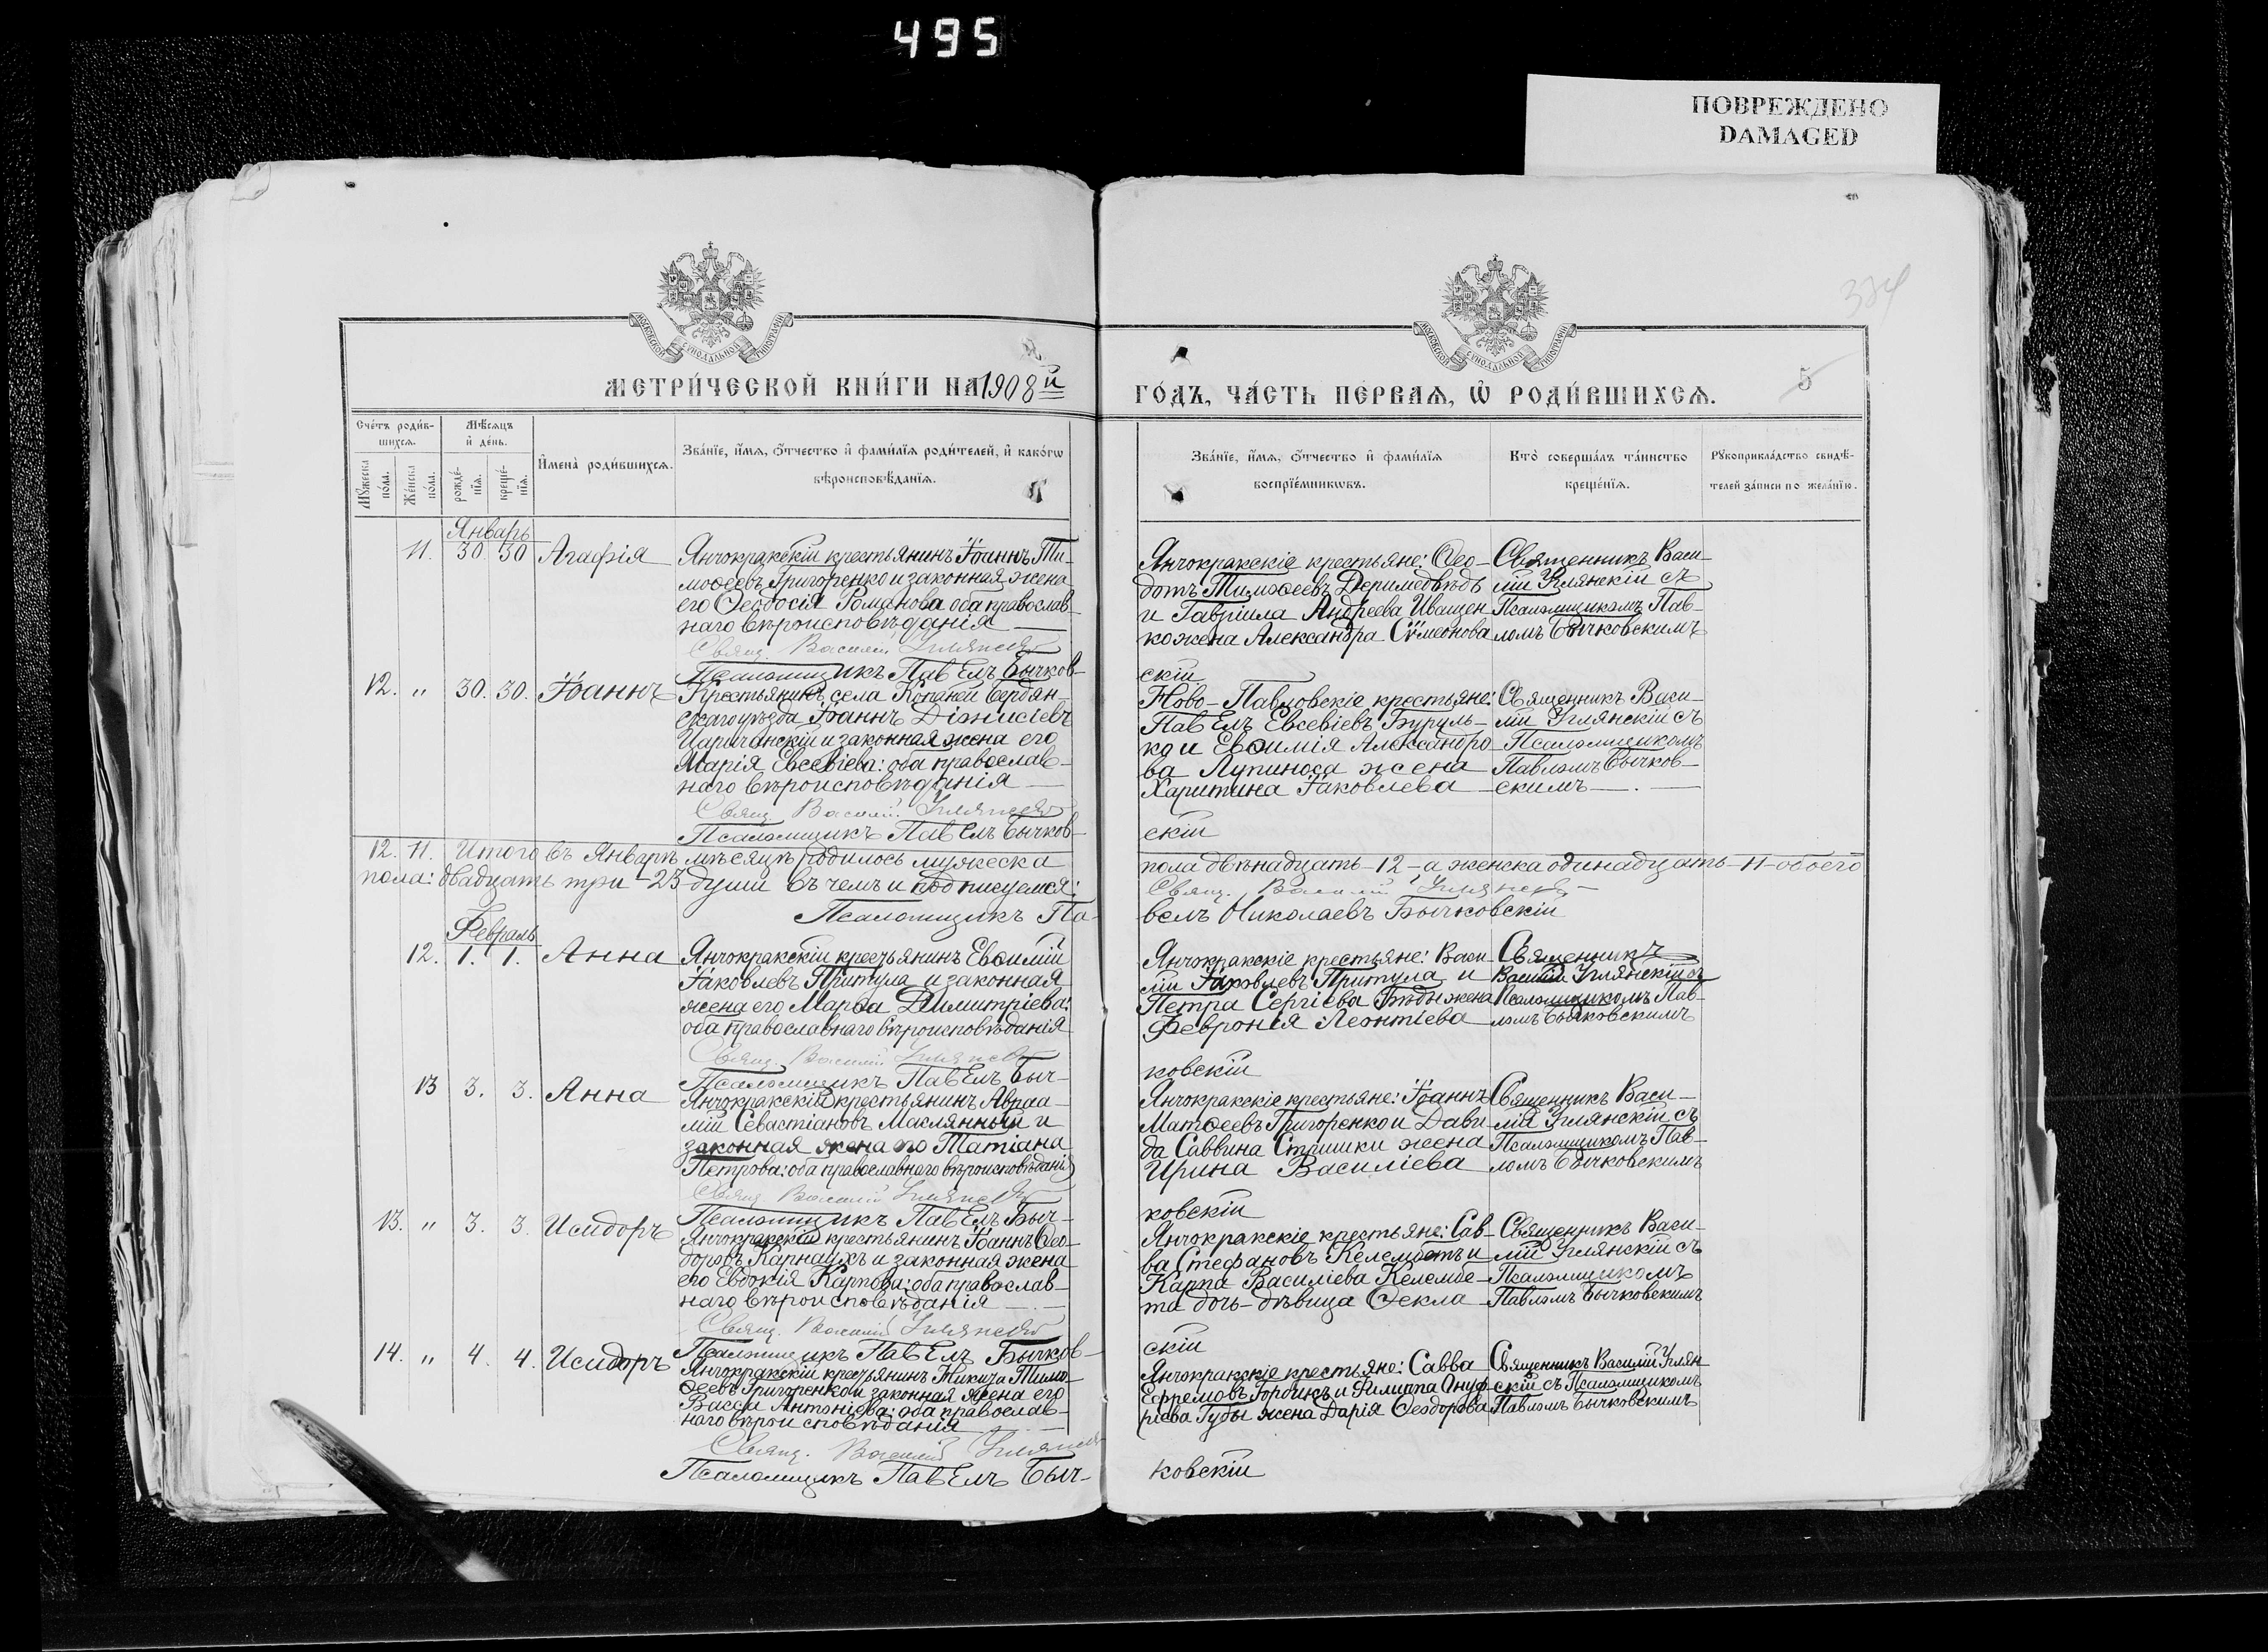 495
ПОВРЕЖДЕНО
DAMAGED
334
МОСКОВСКОЙ СѴНОДАЛЬНОЙ ТИПОГРАФІИ
МОСКОВСКОЙ СѴНОДАЛЬНОЙ ТИПОГРАФІИ
МЕТРИ́ЧЕСКОЙ КНИ́ГИ НА 1908й ГО́ДЪ, ЧА́СТЬ ПЕ́РВАѦ, Ѡ РОДИ́ВШИХСѦ.
5
Сче́тъ роди́в-
шихсѧ.
Мѣ́сѧцъ
и҆ де́нь.
Мꙋ́жеска
по́ла.
Же́нска
по́ла.
рожде́-
нїѧ.
креще́-
нїѧ.
И҆мена̀ роди́вшихсѧ.
Зва́нїе, и҆́мѧ, ѻ҆́тчество и҆ фами́лїѧ роди́телей, и҆ како́гѡ
вѣроисповѣ́данїѧ.
Зва́нїе, и҆́мѧ, ѻ҆́тчество и҆ фами́лїѧ
воспрїе́мникѡвъ.
Кто̀ соверша́лъ та́инство
креще́нїѧ.
Рꙋкоприкла́дство свидѣ́-
телей за́писи по жела́нїю.
Январь
11. 30 30 Агафія
Янчокракскій крестьянинъ Іоаннъ Ти-
моѳеевъ Григоренко и законная жена
его Ѳеодосія Романова оба православ-
наго вѣроисповѣданія
Свящ. Василій Углянскій
Псаломщикъ Павелъ Бычков-
Янчокракскіе крестьяне: Ѳео-
дотъ Тимоѳеевъ Деримедвѣдь
и Гавріила Андреева Иващен
ко жена Александра Сѵмеонова
скій
Священникъ Васи-
лій Углянскій съ
Псаломщикомъ Пав-
ломъ Бычковскимъ
12. " 30. 30. Іоаннъ
Крестьянинъ села Копаней Бердян-
скаго уѣзда Іоаннъ Діонисіевъ
Царичанскій и законная жена его
Марія Евсевіева: оба православ-
наго вѣроисповѣданія
Свящ. Василій Углянскій
Псаломщикъ Павелъ Бычков-
Ново-Павловскіе крестьяне:
Павелъ Евсевіевъ Буруль-
ко и Евѳимія Александро
ва Лупиноса жена
Харитина Іаковлева
скій
Священникъ Васи-
лій Углянскій съ
Псаломщикомъ
Павломъ Бычков-
скимъ
12. 11. Итого въ Январѣ мѣсяцѣ родилось мужеска пола двѣнадцать-12-, а женска одинадцать-11-обоего
пола: двадцать три-23 души въ чемъ и подписуемся: Свящ. Василій Углянскій
Псаломщикъ Павелъ Николаевъ Бычковскій
Февраль
12. 1. 1. Анна
Янчокракскій крестьянинъ Евѳимій
Іаковлевъ Притула и законная
жена его Марѳа Димитріева:
оба православнаго вѣроисповѣданія
Свящ. Василій Углянскій
Псаломщикъ Павелъ Быч-
Янчокракскіе крестьяне: Васи-
лій Іаковлевъ Притула и
Петра Сергіева Бѣды жена
Февронія Леонтіева
ковскій
Священникъ
Василій Углянскій съ
Псаломщикомъ Пав-
ломъ Бычковскимъ
13 3. 3. Анна
Янчокракскій крестьянинъ Авраа-
мій Севастіановъ Маслянный и
законная жена его Татіана
Петрова: оба православнаго вѣроисповѣданія
Свящ. Василій Углянскій
Псаломщикъ Павелъ Быч-
Янчокракскіе крестьяне: Іоаннъ
Матѳеевъ Григоренко и Дави-
да Саввина Стришки жена
Ирина Василіева
ковскій
Священникъ Васи-
лій Углянскій съ
Псаломщикомъ Пав-
ломъ Бычковскимъ
13. " 3. 3. Исидоръ
Янчокракскій крестьянинъ Іоаннъ Ѳео-
доровъ Карнаухъ и законная жена
его Евдокія Карпова: оба православ-
наго вѣроисповѣданія
Свящ. Василій Углянскій
Псаломщикъ Павелъ Бычков-
Янчокракскіе крестьяне: Сав-
ва Стефановъ Келембетъ и
Карпа Василіева Келембе-
та дочь-дѣвица Ѳекла
скій
Священникъ Васи-
лій Углянскій съ
Псаломщикомъ
Павломъ Бычковскимъ
14. " 4. 4. Исидоръ
Янчокракскій крестьянинъ Никита Тимо-
ѳеевъ Григоренко и законная жена его
Васса Антоніева: оба православ-
наго вѣроисповѣданія
Свящ. Василій Углянскій
Псаломщикъ Павелъ Быч-
Янчокракскіе крестьяне: Савва
Ефремовъ Горбинъ и Филиппа Ануф-
ріева Губы жена Дарія Ѳеодорова
ковскій
Священникъ Василій Углян
скій съ Псаломщикомъ
Павломъ Бычковскимъ